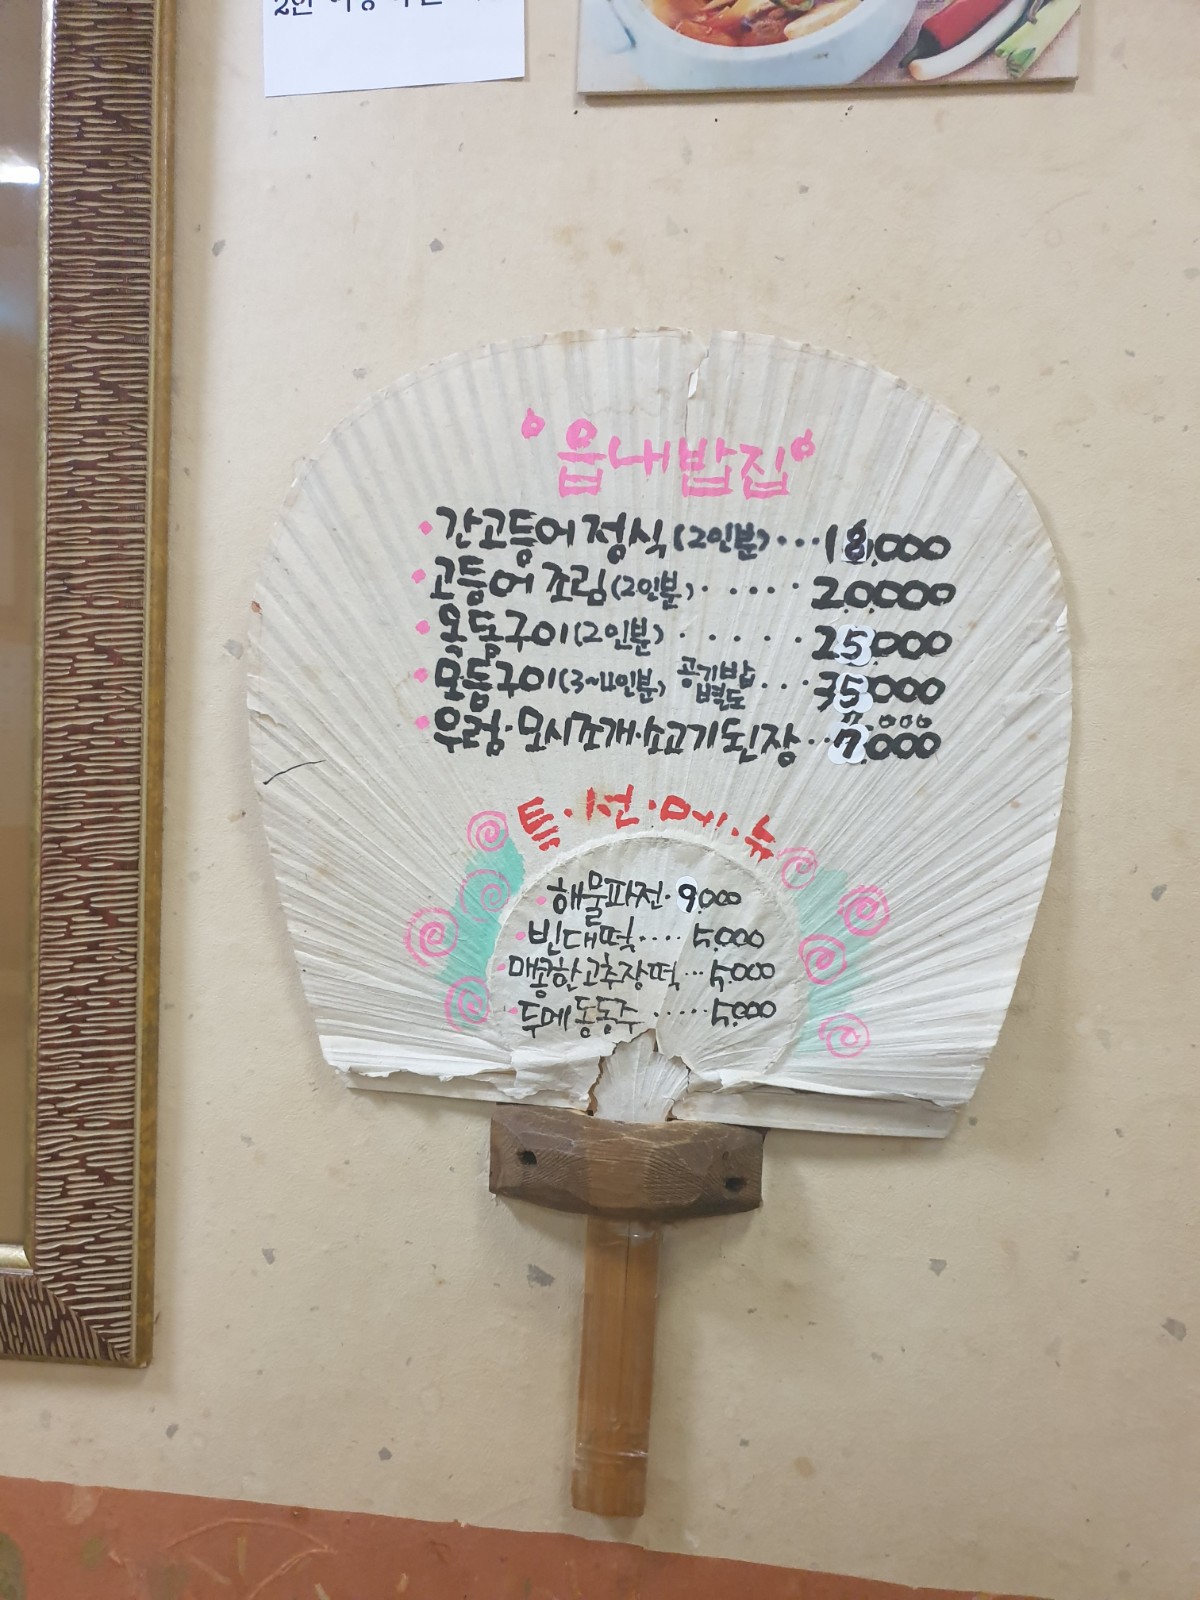 2인
읍내밥집
간고등어 정식 (2인분)···18,000
고등어 조림 (2인분)·····20,000
모듬구이 (2인분)······25,000
모듬구이 (3~4인분) 공기밥 별도···35,000
우렁·모시조개·소고기된장··7,000
특·선·메·뉴
해물파전·9,000
빈대떡····5,000
매콤한고추장떡···5,000
두메동동주·····5,000